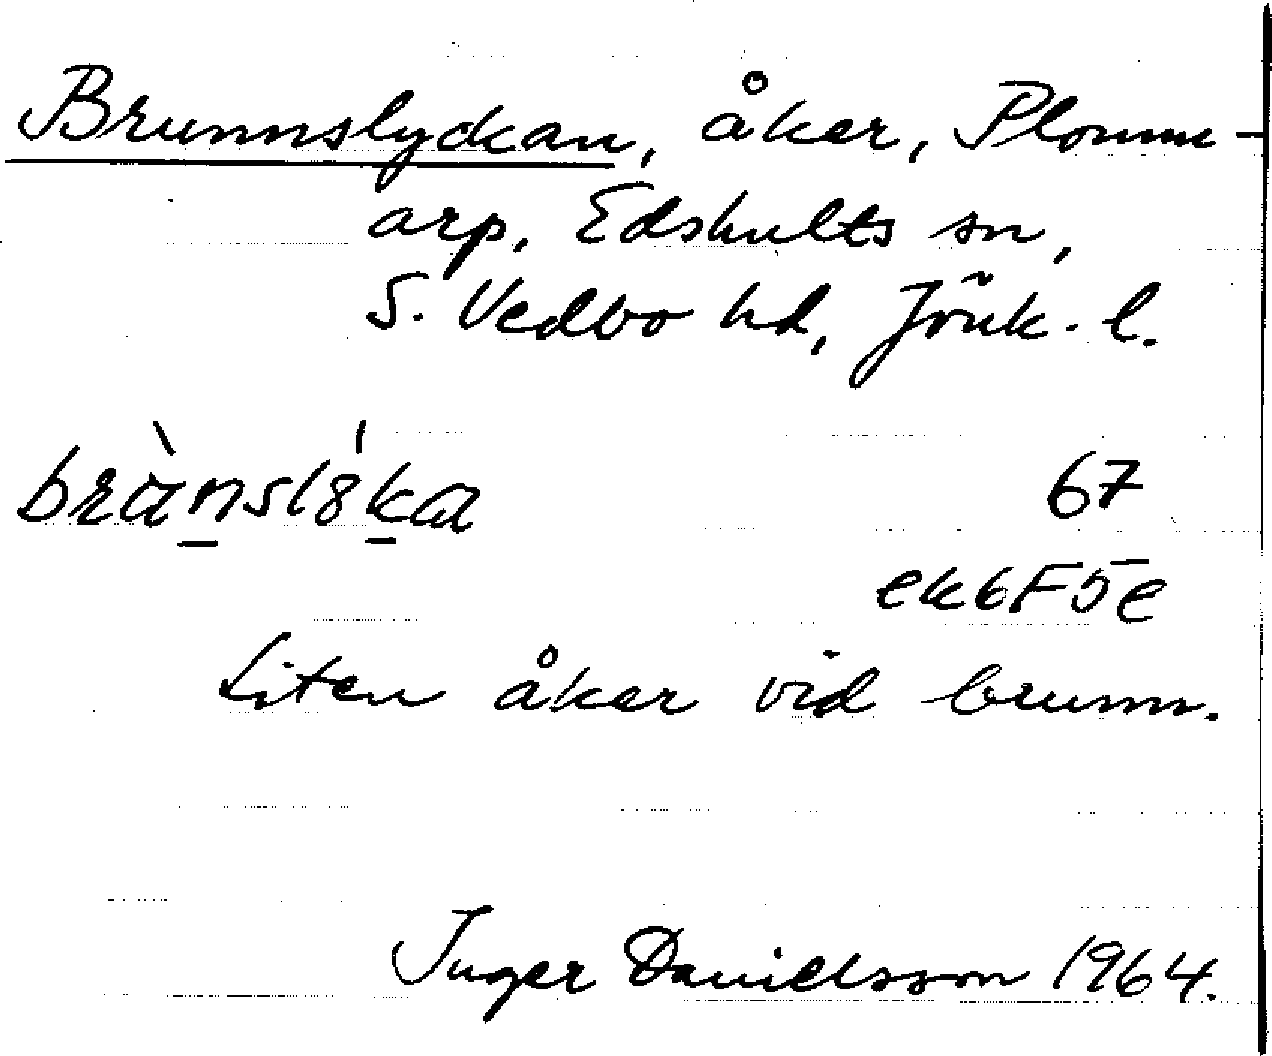 Brunnslyckan, åker, Plomm-
arp, Edshults sn,
S. Vedbo hd, Jönk. l.
67
ek 6F5e
Liten åker vid brunn.
Inger Danielsson 1964.